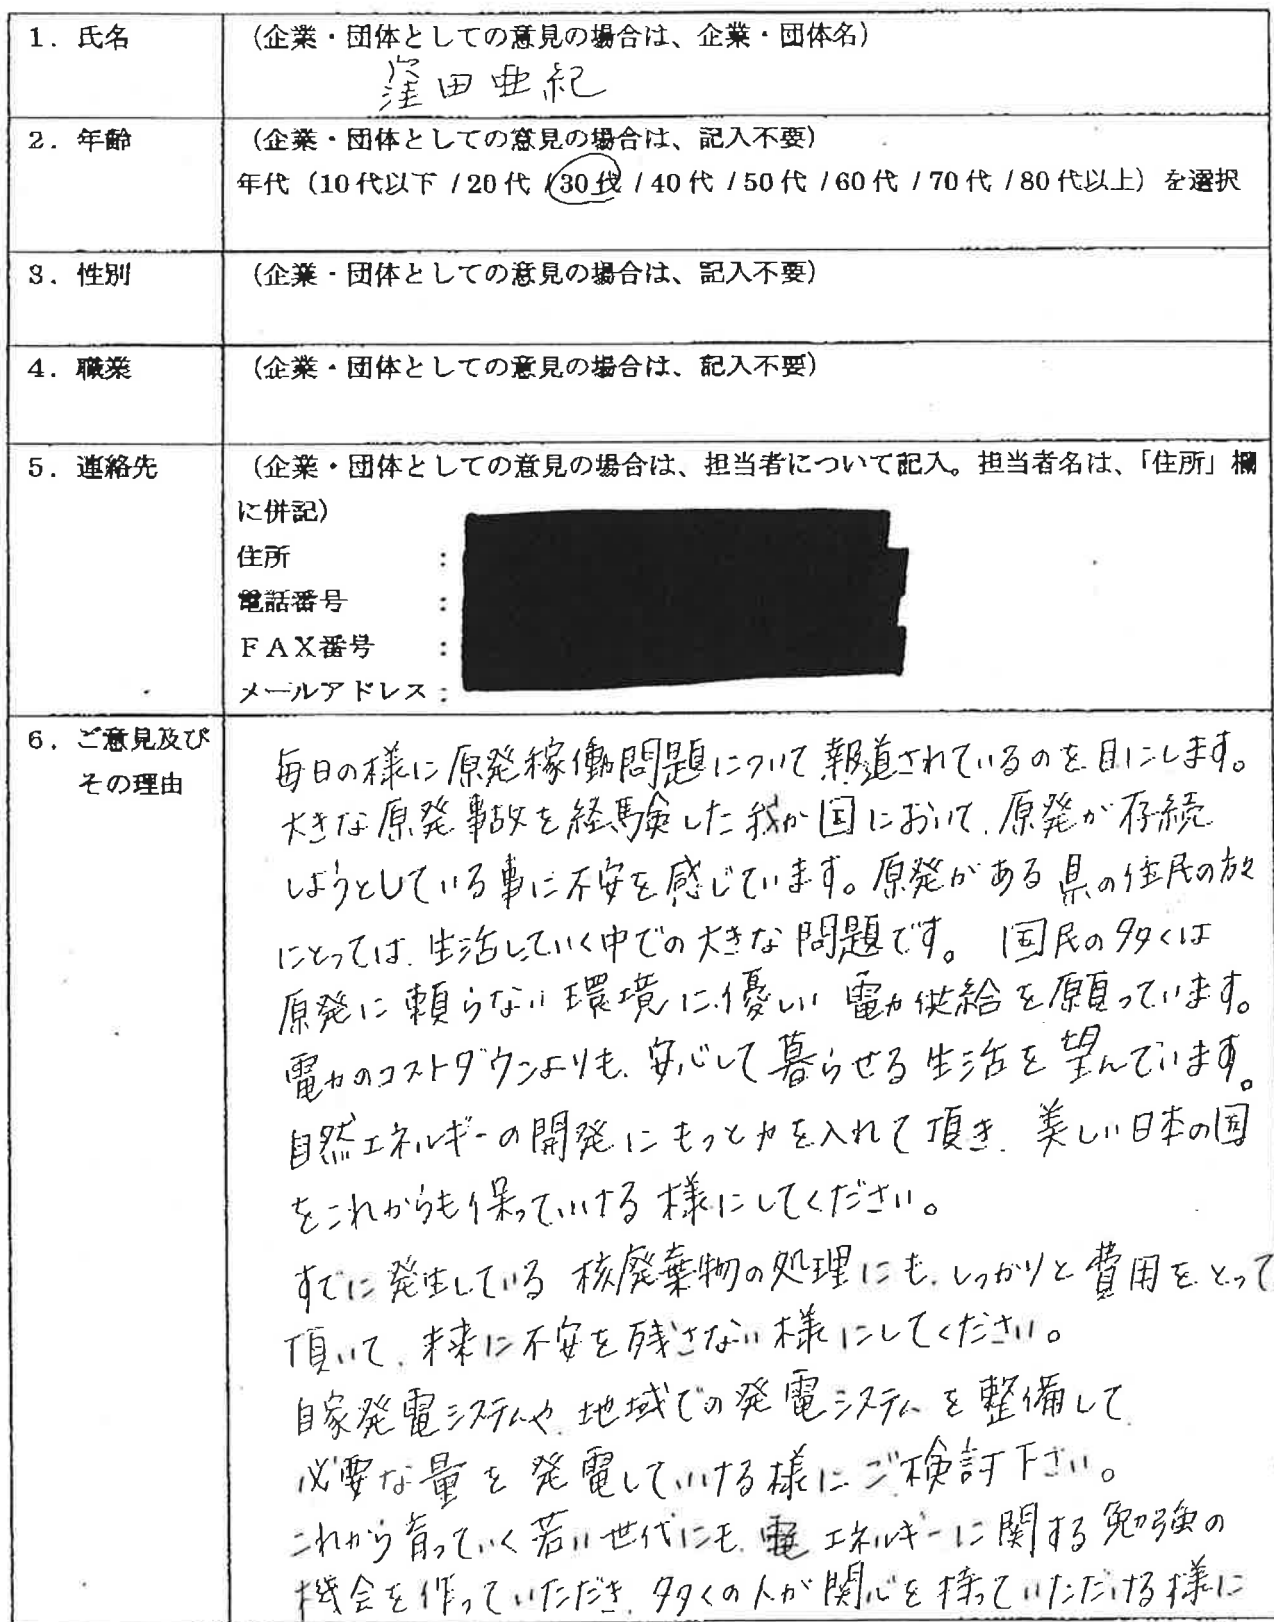 1. 氏名
(企業・団体としての意見の場合は、企業・団体名)
窪田亜紀
2. 年齢
(企業・団体としての意見の場合は、記入不要)
年代(10代以下 / 20代 / 30代 / 40代 / 50代 / 60代 / 70代 / 80代以上)を選択
3. 性別
(企業・団体としての意見の場合は、記入不要)
4. 職業
(企業・団体としての意見の場合は、記入不要)
5. 連絡先
(企業・団体としての意見の場合は、担当者について記入。担当者名は、「住所」欄
に併記)
住所 :
電話番号 :
FAX番号 :
メールアドレス:
6. ご意見及び
その理由
毎日の様に原発稼働問題について報道されているのを目にします。
大きな原発事故を経験した我が国において、原発が存続
しようとしている事に不安を感じています。原発がある県の住民の方々
にとっては、生活していく中での大きな問題です。国民の多くは
原発に頼らない環境に優しい電力供給を願っています。
電力のコストダウンよりも、安心して暮らせる生活を望んでいます。
自然エネルギーの開発にもっと力を入れて頂き、美しい日本の国
をこれからも保っていける様にしてください。
すでに発生している核廃棄物の処理にも、しっかりと費用をとって
頂いて、未来に不安を残さない様にしてください。
自家発電システムや、地域での発電システムを整備して
必要な量を発電していける様にご検討下さい。
これから育っていく若い世代にも、エネルギーに関する勉強の
機会を作っていただき、多くの人が関心を持っていただける様に